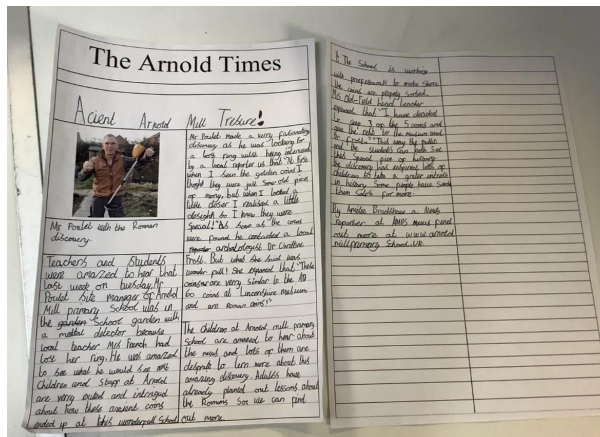 The Arnold Times
Acient Arnold Mill Tresure!
Mr Poulet with the Roman
discovery.
Teachers and Students
were amazed to hear that
last week on tuesday, Mr
Poulet Site manager of Arnold
Mill primary School was in
the School garden with
a mettal detector because
local teacher Mrs French had
lost her ring. He was amazed
to see what he would see next
Children and Staff at Arnold
are very exited and intrigued
about how these ancient coins
ended up at this wonderfull School
Mr Poulet made a very fasinating
discovery as he was looking for
a lost ring whilst being interveiwed
by a local reporter us that "At first
when I seen the golden coins I
thought they were just some old piece
of money, but when I looked a
little closer I realised a little
desighn So I knew they were
Special!" But soon as the coins
were found he contacted a local
archeologist Dr Caroline
Frolt. But what she said was
wonder full! She exponed that "These
coins are very similar to the AD
60 coins at Lincornshire Museum
and are Roman coins!"
The children at Arnold mill primary
School are amazed to hear about
the news and lots of them are
desprate to lern more about this
amazing discovery. Adults have
already planed out lessons about
the Romans Sor we can find
out more.
The School is working
with professionals to make Shore
the coins are properly sorted.
Ms Old-Field head teacher
exponed that "I have decided
to keep 3 of the 5 coins and
give the rest to the museum and
for free". This way the public
and the Students can both See
this Special pice of history.
the discovery has inspired lots of
children to take a grater intrest
in history. Some people have
them Selfs for more.
By Amilee Bradshaw a News
Reporter at AMPS news find
out more at www.arnold
millprimary School.UK.